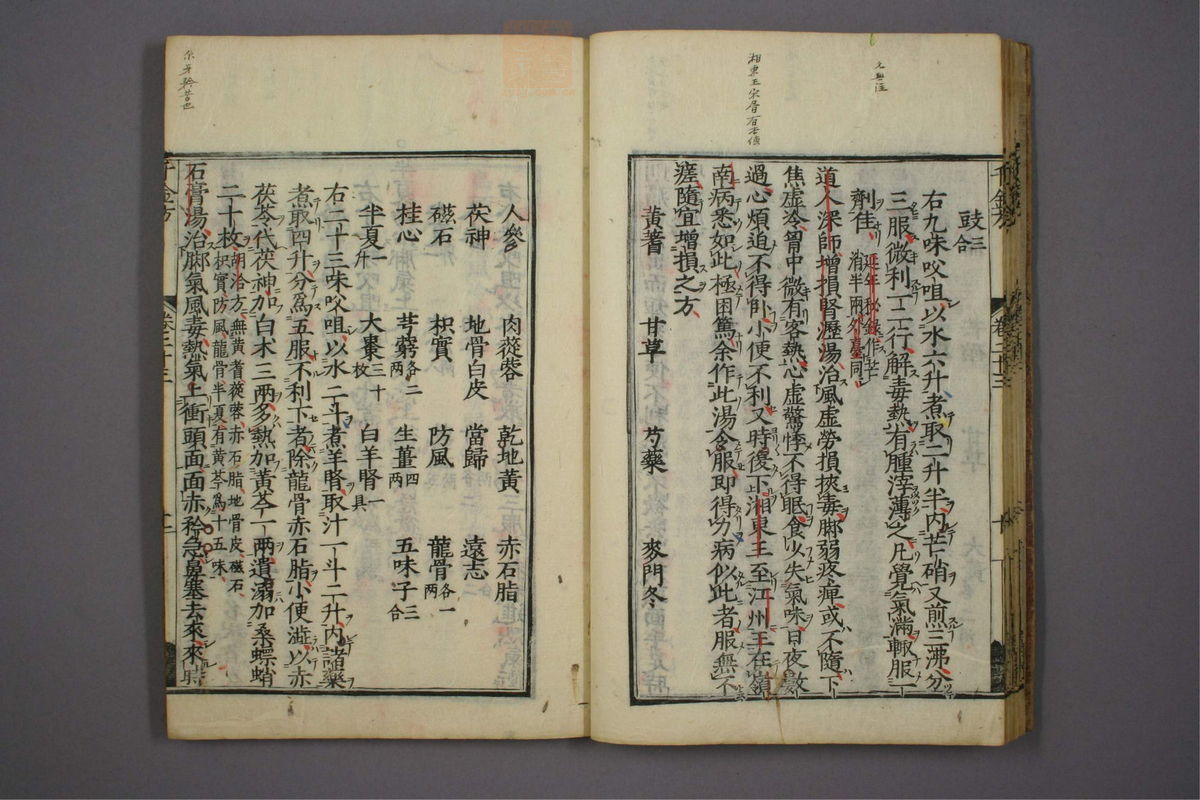 豉三合
右九味㕮咀以水六升煮取二升半内芒硝又煎三沸分
三服微利一二行解毒熱有腫滓薄之凡覺氣滿輙服一
劑佳延年秘錄作芒消半兩外臺同
道人深師增損腎瀝湯治風虛勞損挾毒脚弱疼痺或不隨下
焦虛冷胷中微有客熱心虛驚悸不得眠食少失氣味日夜數
過心煩迫不得卧小便不利又時復下湘東王至江州王在嶺
南病悉如此極困篤余作此湯令服即得力病似此者服無不
瘥隨宜增損之方
黃蓍 甘草 芍藥 麥門冬
人參 肉蓯蓉 乾地黃 赤石脂
茯神 地骨白皮 當歸 遠志
磁石 枳實 防風 龍骨各一兩
桂心 芎藭各二兩 生薑四兩 五味子三合
半夏一升 大棗三十枚 白羊腎一具
右二十三味㕮咀以水二斗煮羊腎取汁一斗二升内諸藥
煮取四升分爲五服不利下者除龍骨赤石脂小便澁以赤
茯苓代茯神加白术三兩多熱加黃芩一兩遺溺加桑螵蛸
二十枚胡洽方無黃耆蓯蓉赤石脂地骨皮磁石枳實防風龍骨半夏有黃芩爲十五味
石膏湯治脚氣風毒熱氣上衝頭面面赤矜急鼻塞去來來時
千金方
卷二十三
湘東王宋